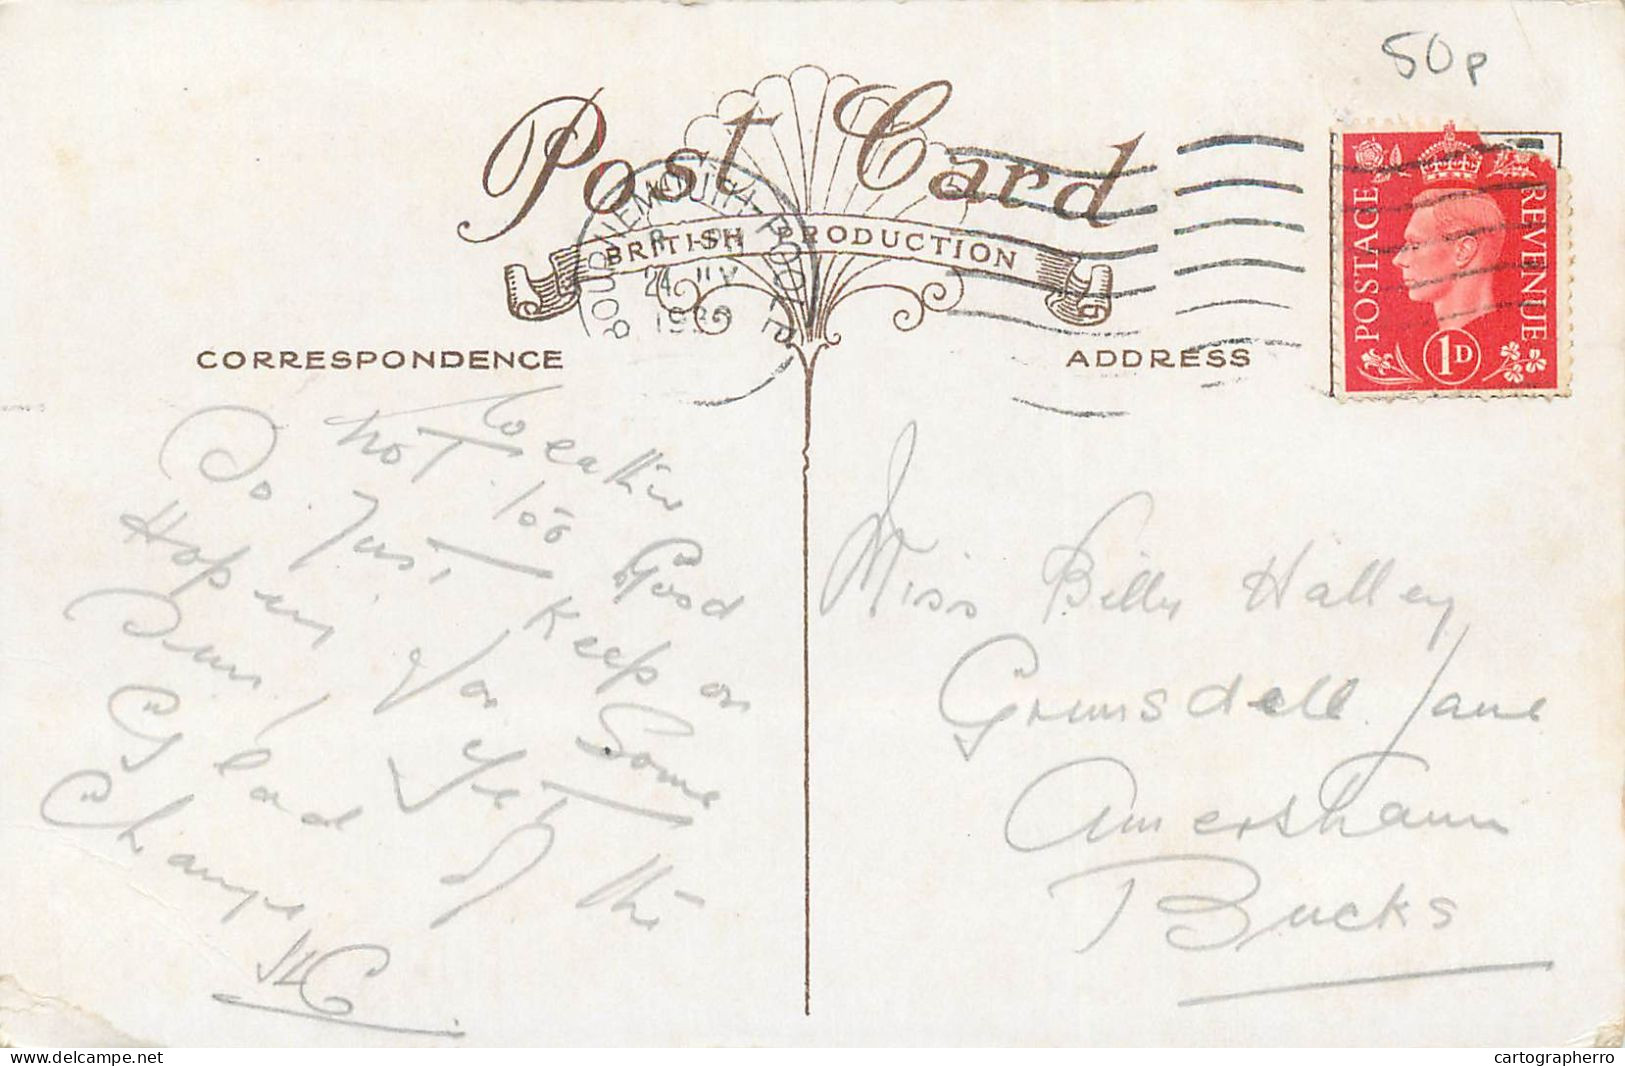 50p
Post Card
BRITISH PRODUCTION
BOURNEMOUTH-POOLE
24 JY
CORRESPONDENCE
ADDRESS
POSTAGE
REVENUE
1D
Weather
not too Good
So Just Keep on
Hoping for Some
Sun, Yet,
Glad of the
Change
Miss Billy Halley
Grimsdell Lane
Amersham
Bucks
www.delcampe.net
cartographerro